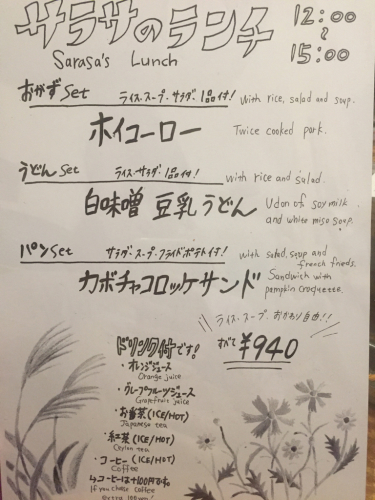 サラサのランチ
12:00
~
15:00
Sarasa's Lunch
おかずset ライス・スープ・サラダ・1品付! with rice, salad and soup.
ホイコーロー Twice cooked pork.
うどんset ライス・サラダ・1品付! with rice and salad.
白味噌 豆乳うどん Udon of soy milk
and white miso soup.
パンset サラダ・スープ・フライドポテト付! with salad, soup and
french frieds.
カボチャコロッケサンド Sandwich with
pumpkin croquette.
ライス・スープ おかわり自由!!
すべて ¥940
ドリンク付です!
・オレンジジュース
Orange juice
・グレープフルーツジュース
Grapefruit juice
・お番茶(ICE/HOT)
Japanese tea
・紅茶(ICE/HOT)
Ceylon tea
・コーヒー(ICE/HOT)
Coffee
↳コーヒーは+100円です。
If you choose coffee
extra 100 yen.